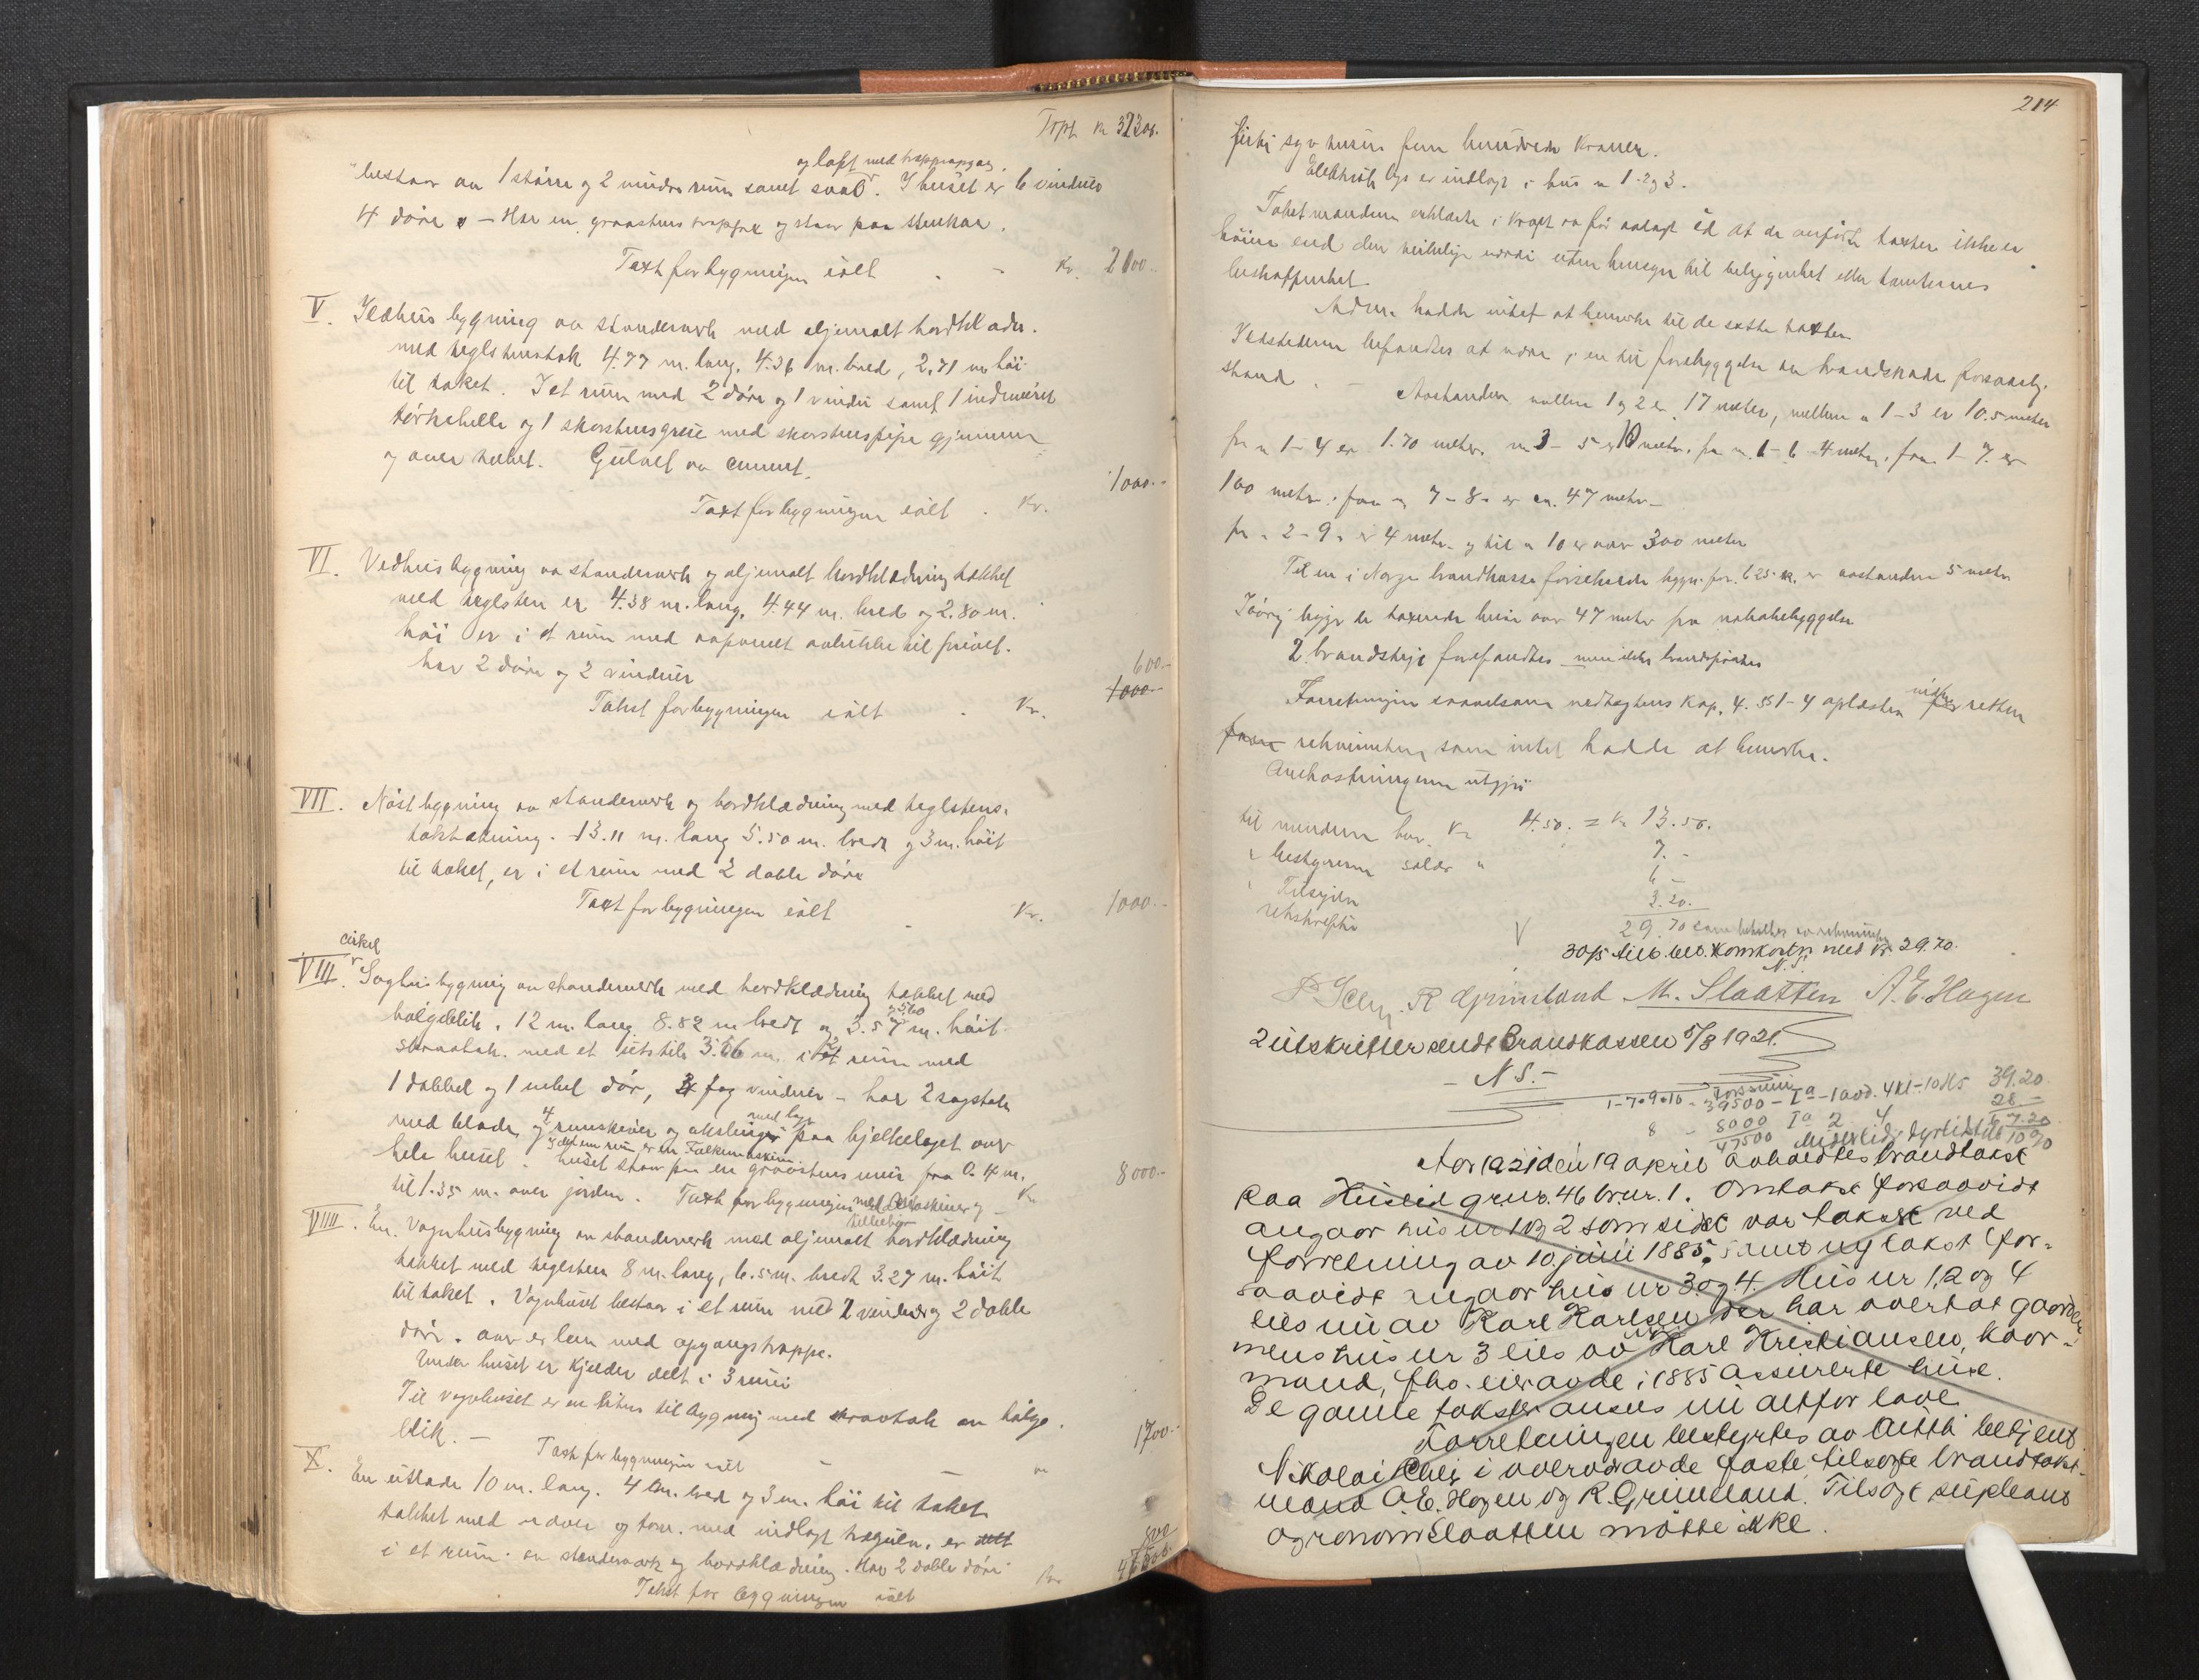 Trpt. Kr 32200.
og loft med trappopgang.
bestaar av 1 större og 2 mindre rum samt sval. I huset er 6 vinduer
4 döre - Har en graastens trappe og staar paa stenkar.
Taxt for bygningen ialt - - Kr. 2100.-
V. Ildhus bygning av standerverk med oljemalt bordklædn.
med teglstenstak 4.77 m. lang, 4.36 m. bred, 2.71 m. höi
til taket. I et rum med 2 döre og 1 vindu samt 1 indmuret
törkehelle og 1 skorstensgrue med skorstenspipe gjennem
og over taket. Gulvet av cement.
Taxt for bygningen ialt - Kr. 1000.-
VI. Vedhus bygning av standerverk og oljemalt bordklædning tækket
med teglsten er 4.38 m. lang, 4.44 m. bred og 2.80 m.
höi er i et rum med avpanelt avlukke til privet.
har 2 döre og 2 vinduer
600.-
Takst for bygningen ialt - Kr. 1000.-
VII. Nöst bygning av standerverk og bordklædning med teglstens-
taktækning. 13.11 m. lang 5.50 m. bredt og 3 m. höit
til taket, er i et rum med 2 doble döre
Taxt for bygningen ialt - Kr. 1000.-
cirkel
VIII. Saghus bygning av standerverk med bordklædning tækket med
bölgeblik. 12 m. lang 8.82 m bredt og 3.57 m. höit
skraatak. med et utstik 3.66 m. i et rum med
1 dobbel og 1 enkel dör, fag vinduer - har 2 sagstole
med blade, og 4 remskiver og akslinger med lager paa bjelkelaget over
hele huset. huset staar paa en graastens mur fra 0.4 m.
til 1.35 m. over jorden. Taxt for bygningen med maskiner og tilbehør Kr 8000.-
VIIII. En Vognhusbygning av standerverk med oljemalt bordklædning
tækket med teglsten 8 m. lang, 6.5 m. bredt 3.27 m. höit
til taket. Vognhuset bestaar i et rum med 2 vinduer og 2 doble
döre. over er lem med opgangstrappe.
Under huset er kjelder delt i 3 rum
Til vognhuset er en liten tilbygning med skraatak av bölge-
blik. - Taxt for bygningen ialt - - " 1700.-
X. En utlade 10 m. lang. 4 m. bred og 3 m. höi til taket
tækket med næver og torv. med indlagt trægulv. er delt
i et rum. av standerværk og bordklædning. Har 2 doble döre
Takst for bygningen ialt Kr 800
214
firti syv tusen fem hundrede kroner.
Elektrisk lys er indlagt i hus n 1-2 og 3.
Takstmændene erklærte i kraft av för avlagt ed at de anförte taxter ikke er
höiere end den virkelige værdi uten hensyn til beliggenhet eller tomternes
beskaffenhet.
hadde intet at bemerke til de satte taxter
Ildstederne befandtes at være i en til forebyggelse av brandskade forsvarlig
stand. - Avstanden mellem 1 og 2 er 17 meter, mellem n 1-3 er 10.5 meter
fra n 1-4 er 1.70 meter. n 3-5 er 10 meter. fra n. 1-6-4 meter, fra 1-7. er
100 meter. fra n 7-8 er ca. 47 meter-
fra n 2-9 er 4 meter og til n 10 er over 300 meter
Til en i Norges brandkasse forsikrede bygn. for 625 kr. er avstanden 5 meter
Iövrig ligge de taxerede huse over 47 meter fra nabobebyggelse
2 brandstige forefandtes men ikke brandspröiter
Forretningen saavelsom vedtægtens Kap. 4. §§ 1-4 oplæstes retten
rekvirenten som intet hadde at bemerke.
Omkostningerne utgjör
til mændene hver Kr 4.50. = Kr 13.50.
" bestyreren salær " 7.-
" Tilsyn 6-
utskrifter 3.20.
29.70 som betales av rekvirenten
30/5 tilb. bet. omkostn med kr. 29.70.
N.S.
R Grimeland M. Slaatten A.E. Hagen
2 utskrifter sendt Brandkassen 5/8 1921.
- N.S. -
1-7 og 9 og 10 - 39500 - Ia - 1 avd. 4 kl - 10 hs 39.20
8 - 8000 Ia 2 4 28.-
47500 67.20
Aar 1921 den 19 april avholdtes brandtakst
paa gr.nr. 46 br.nr. 1. Omtakst forsaavidt
angaar hus nr 1 og 2 som sidst var takst ved
forretning av 10. juni 1885, samt ny takst for-
saavidt angaar hus nr 3 og 4. Hus nr 1, 2 og 4
eies nu av Karl Karlsen der har overtat gaarden
mens hus nr 3 eies av Karl Kristiansen, kaar-
mand, fho. eier av de i 1885 assurerte huse.
De gamle takster ansees nu altfor lave
Forretningen bestyrtes av betjent
Nikolai i overvær av de faste tilsagte brandtakst-
mænd A.E. Hagen og R. Grimeland. Tilsagt supleant
agronom Slaatten mötte ikke.